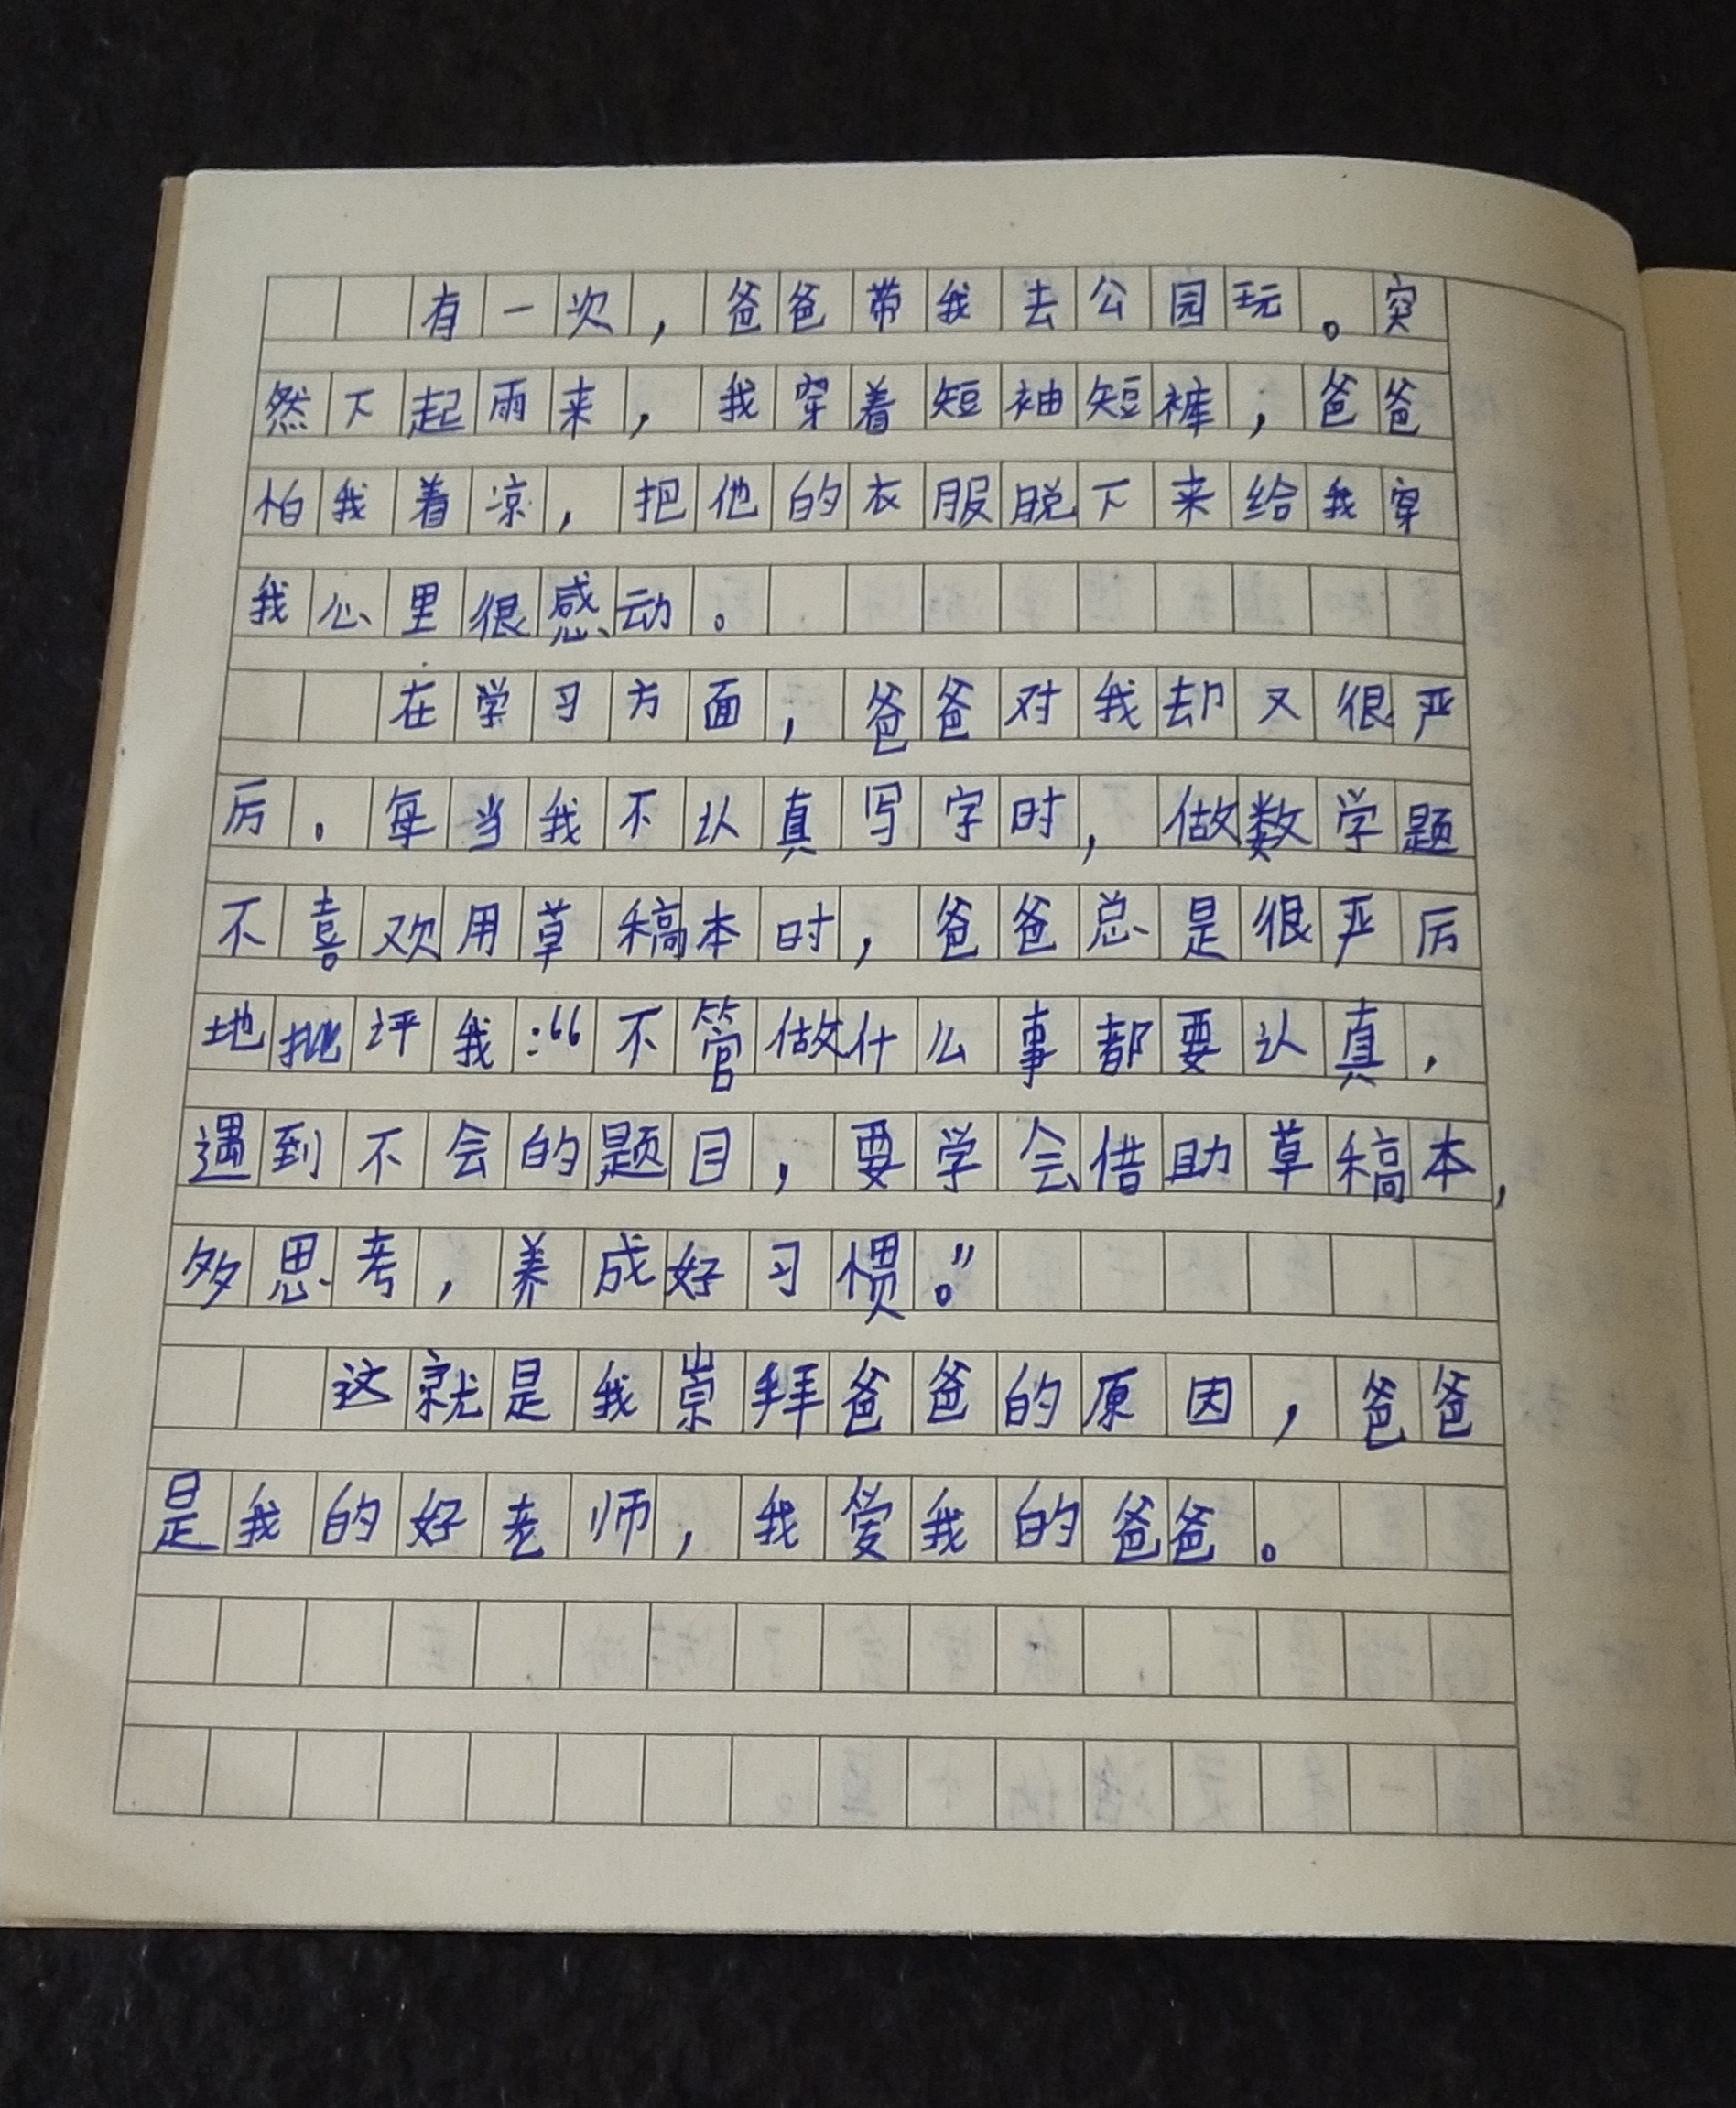 有一次，爸爸带我去公园玩。突
然下起雨来，我穿着短袖短裤，爸爸
怕我着凉，把他的衣服脱下来给我穿
我心里很感动。
在学习方面，爸爸对我却又很严
厉。每当我不认真写字时，做数学题
不喜欢用草稿本时，爸爸总是很严厉
地批评我：“不管做什么事都要认真，
遇到不会的题目，要学会借助草稿本，
多思考，养成好习惯。”
这就是我崇拜爸爸的原因，爸爸
是我的好老师，我爱我的爸爸。